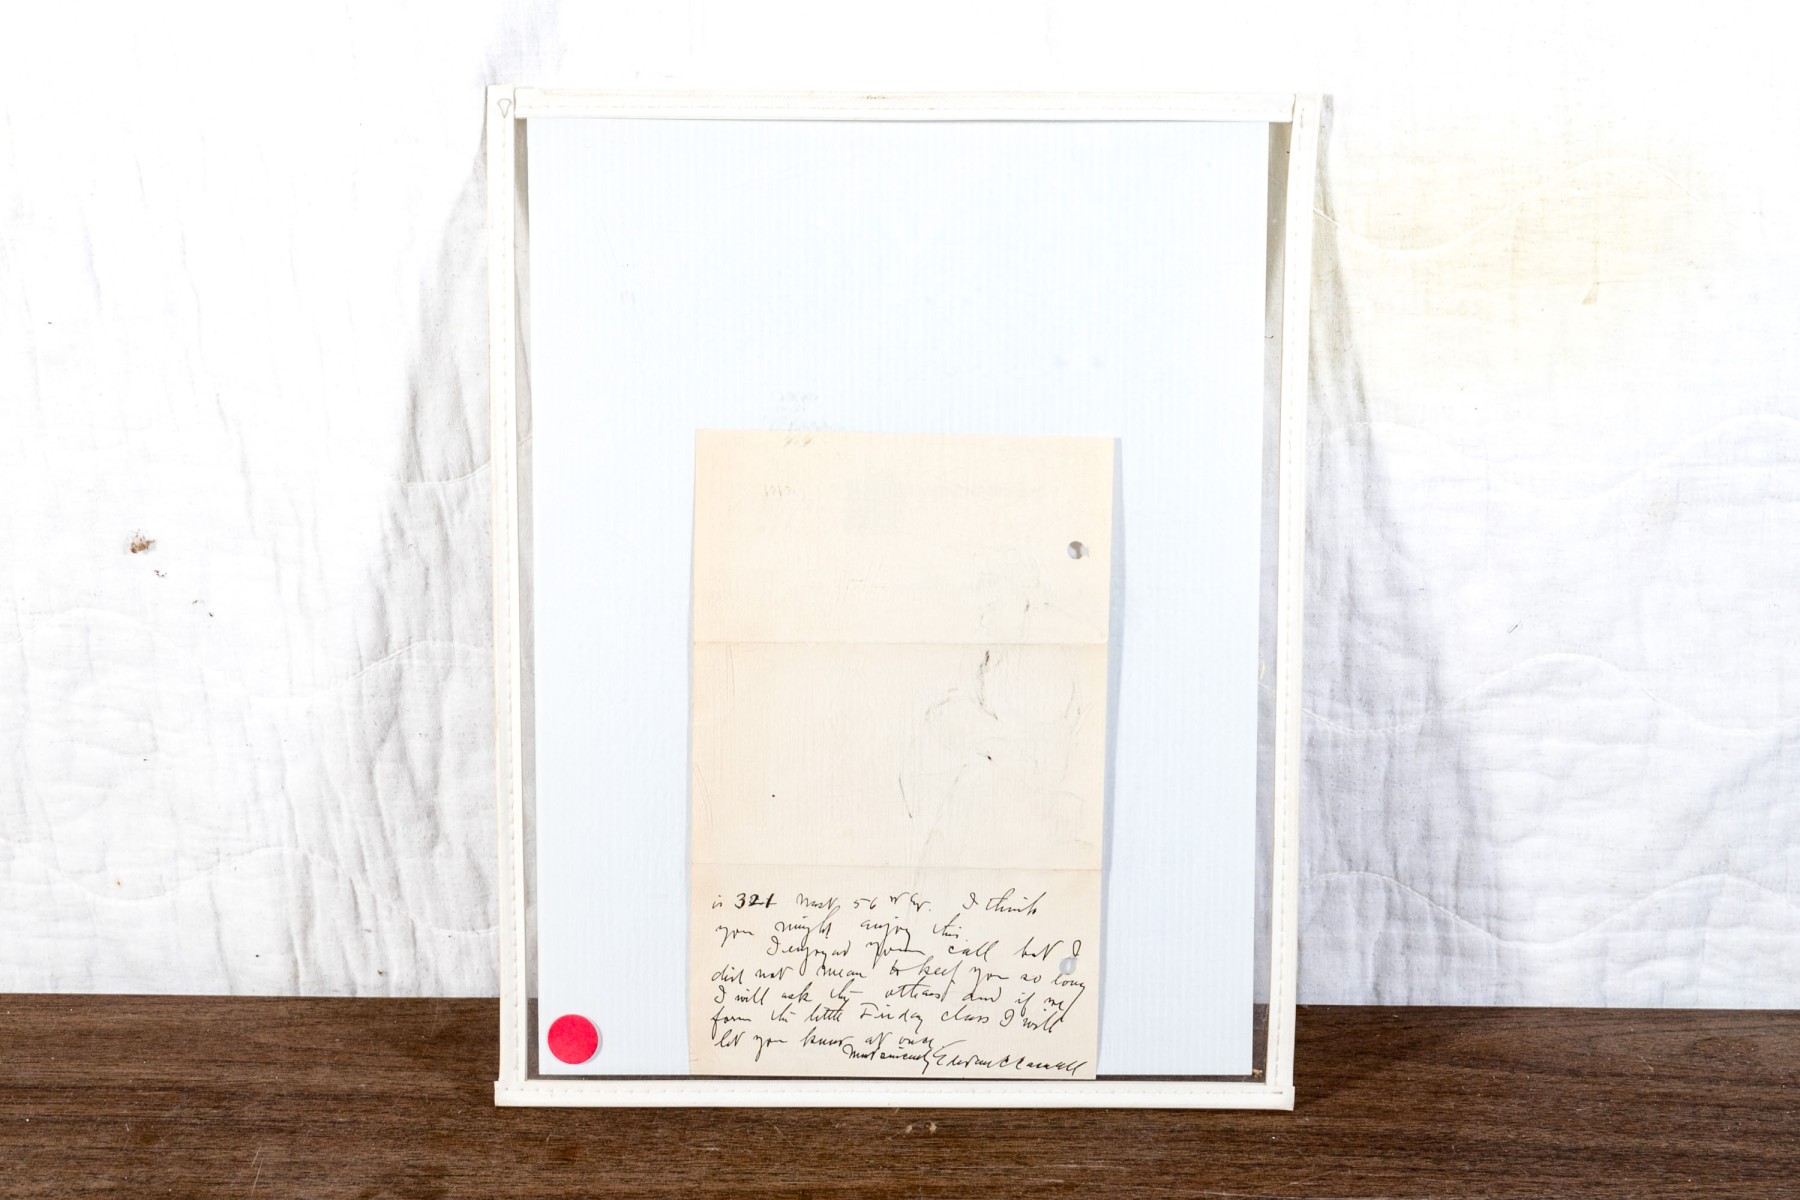 is 321 West 56 th St. I think
you might enjoy this.
I enjoyed your call but I
did not mean to keep you so long
I will ask the others and if we
form the little Friday class I will
let you know at once.
Most sincerely